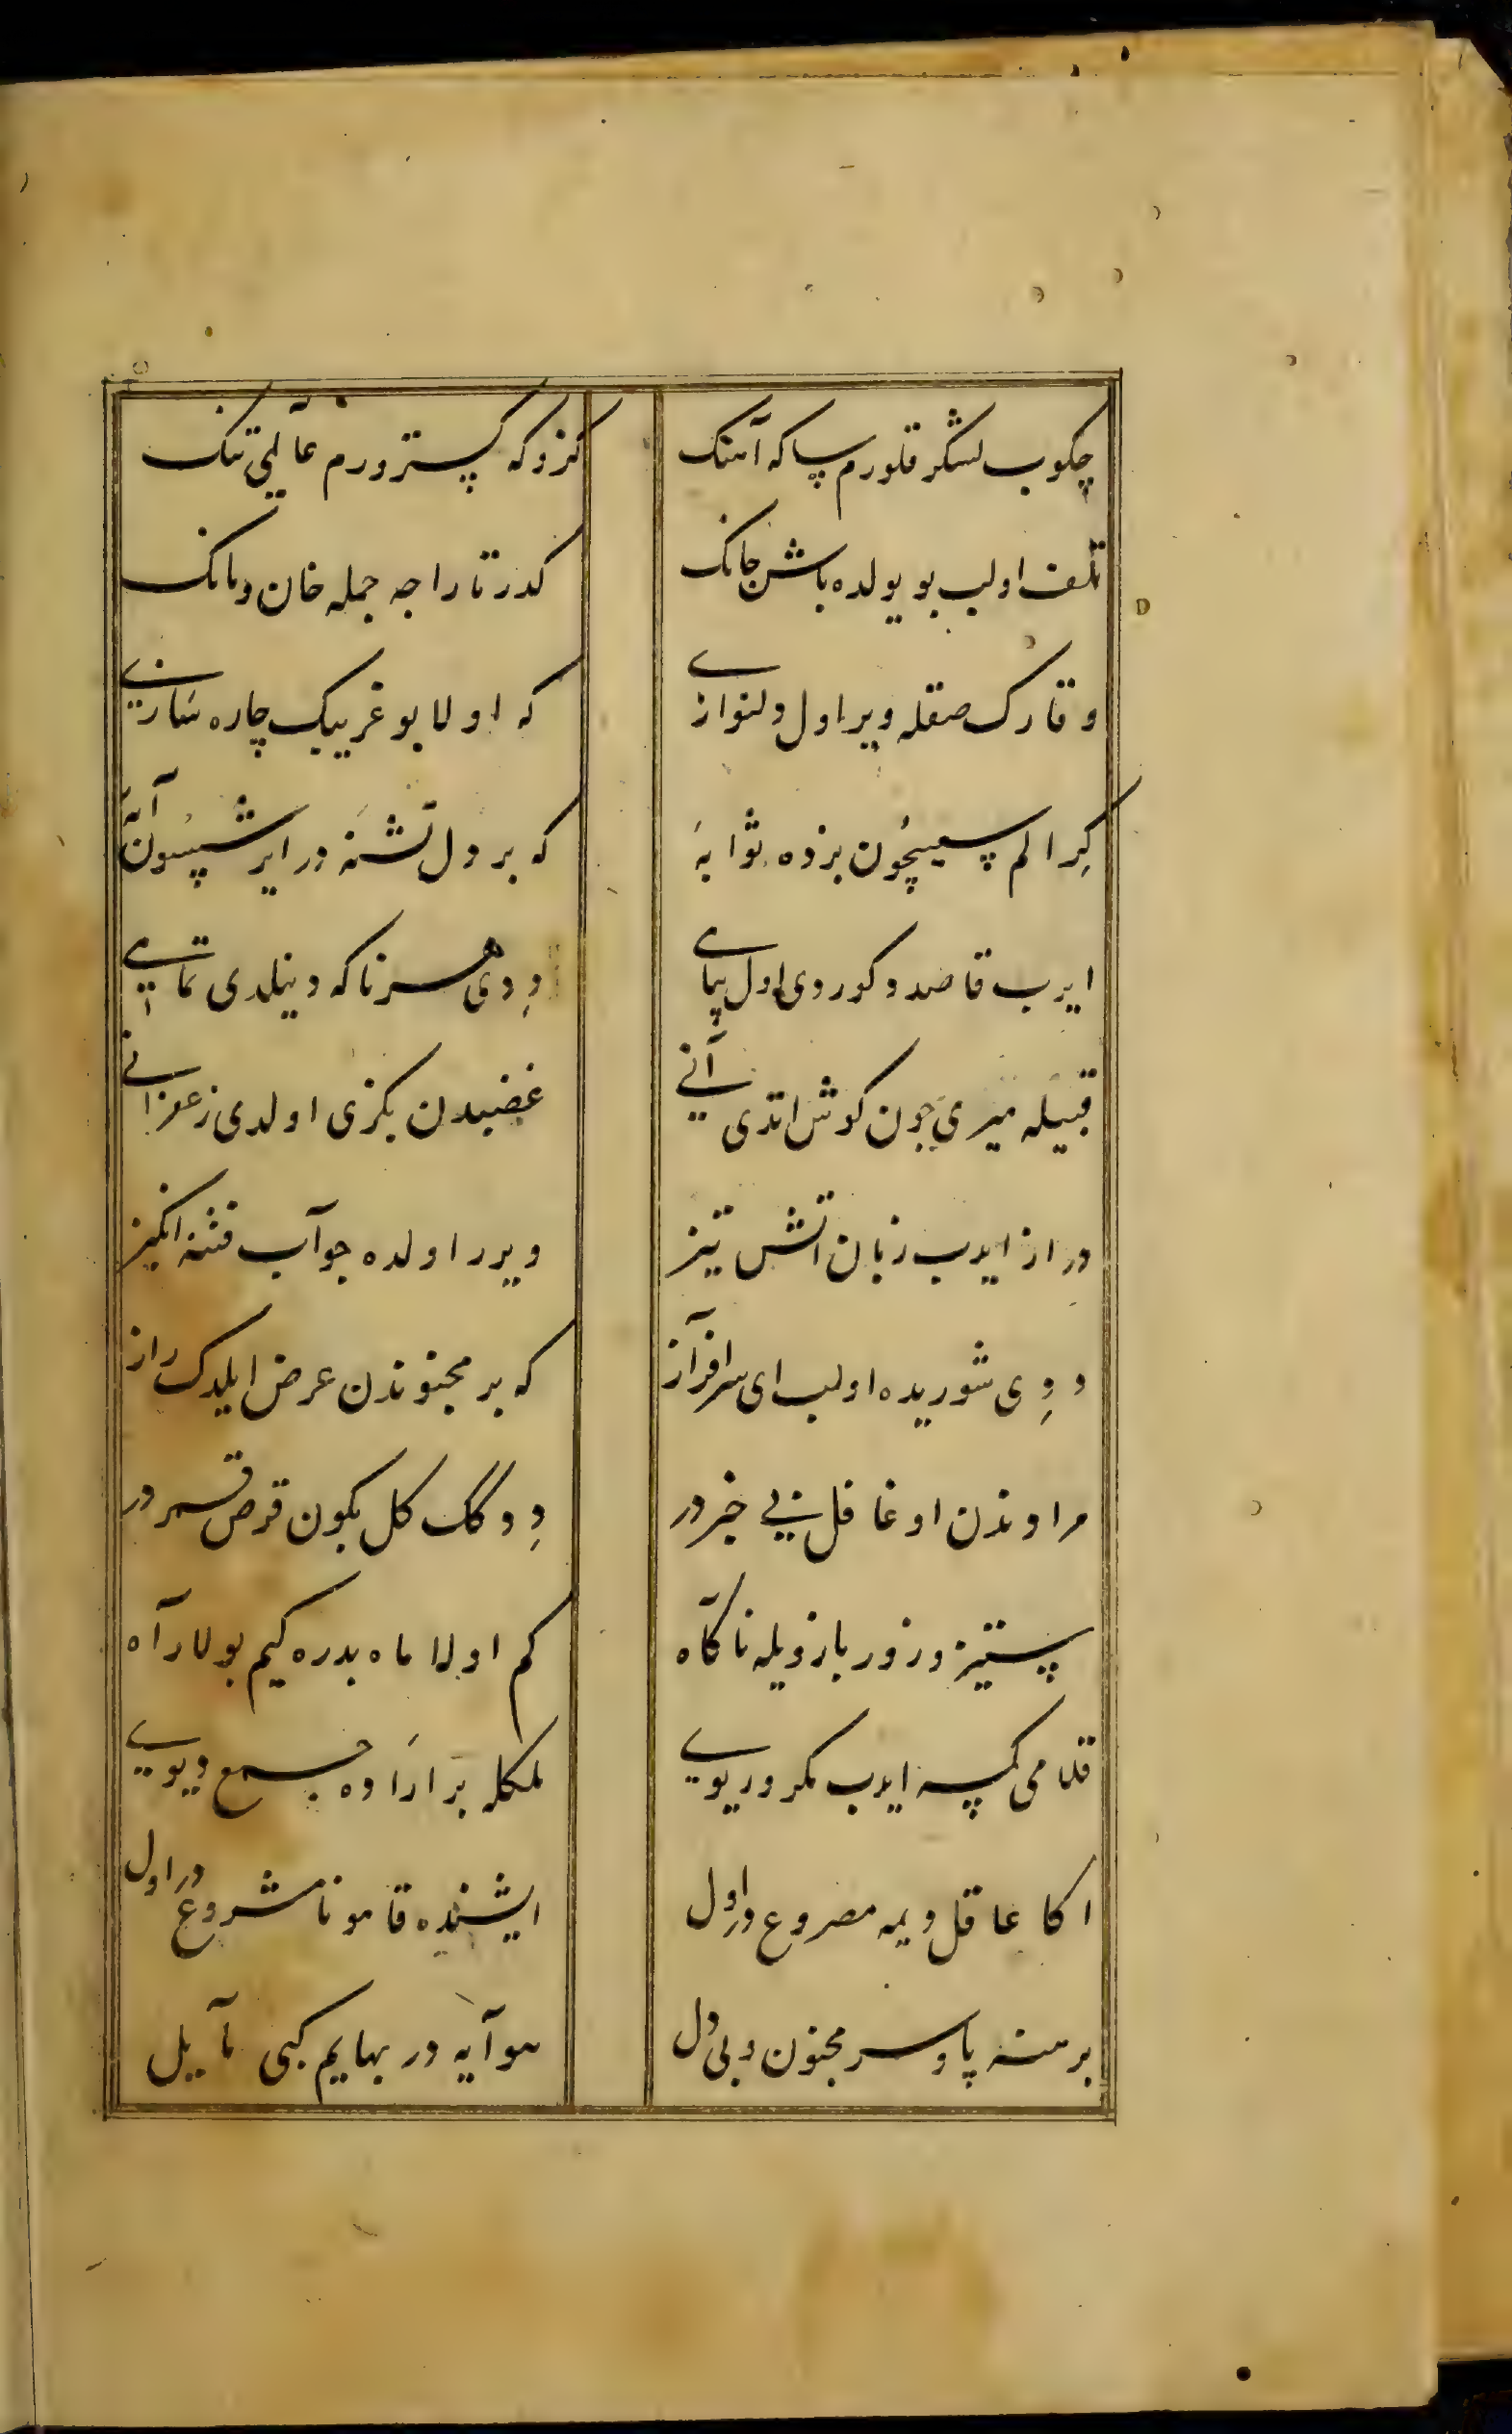 چکوب لشکر قلورم ساکه آهنک کزوکه کسترورم عالمی تنک
تلف اولب بو یولده باش جانک کدر تاراجه جمله خان ومانک
وقارک صقله ویر اول دلنوازی که اولا بو غریبک چاره سازی
کرالم سیچون بزده ثوابه که بر دل تشنه در ایرشسون آبه
ایرب قاصد دکوردی اول پیامی ددی هر ناکه دینلدی تمامی
قبیله میری چون کوش اتدی آنی غضبدن بکزی اولدی زعفرانی
دراز ایدب زبان آتش تیز ویرر اولده جوآب فتنه انکیز
ددی شوریده اولب ای سرافرآز که بر مجنوندن عرض ایلدک راز
مراوندن او غافل بی خبردر ددکک کل بکون قرص قمردر
ستیز وزور بازویله ناکآه کم اولا ماه بدره کیم بولار آه
قلامی کسه ایدب مکر وریویی ملکله بر ارآده جمع دیویی
اکا عاقل دیمه مصروع دراول ایشنده قامو نامشروع دراول
برهنه پا وسر مجنون وبی دل هوآیه در بهایم کبی مآیل